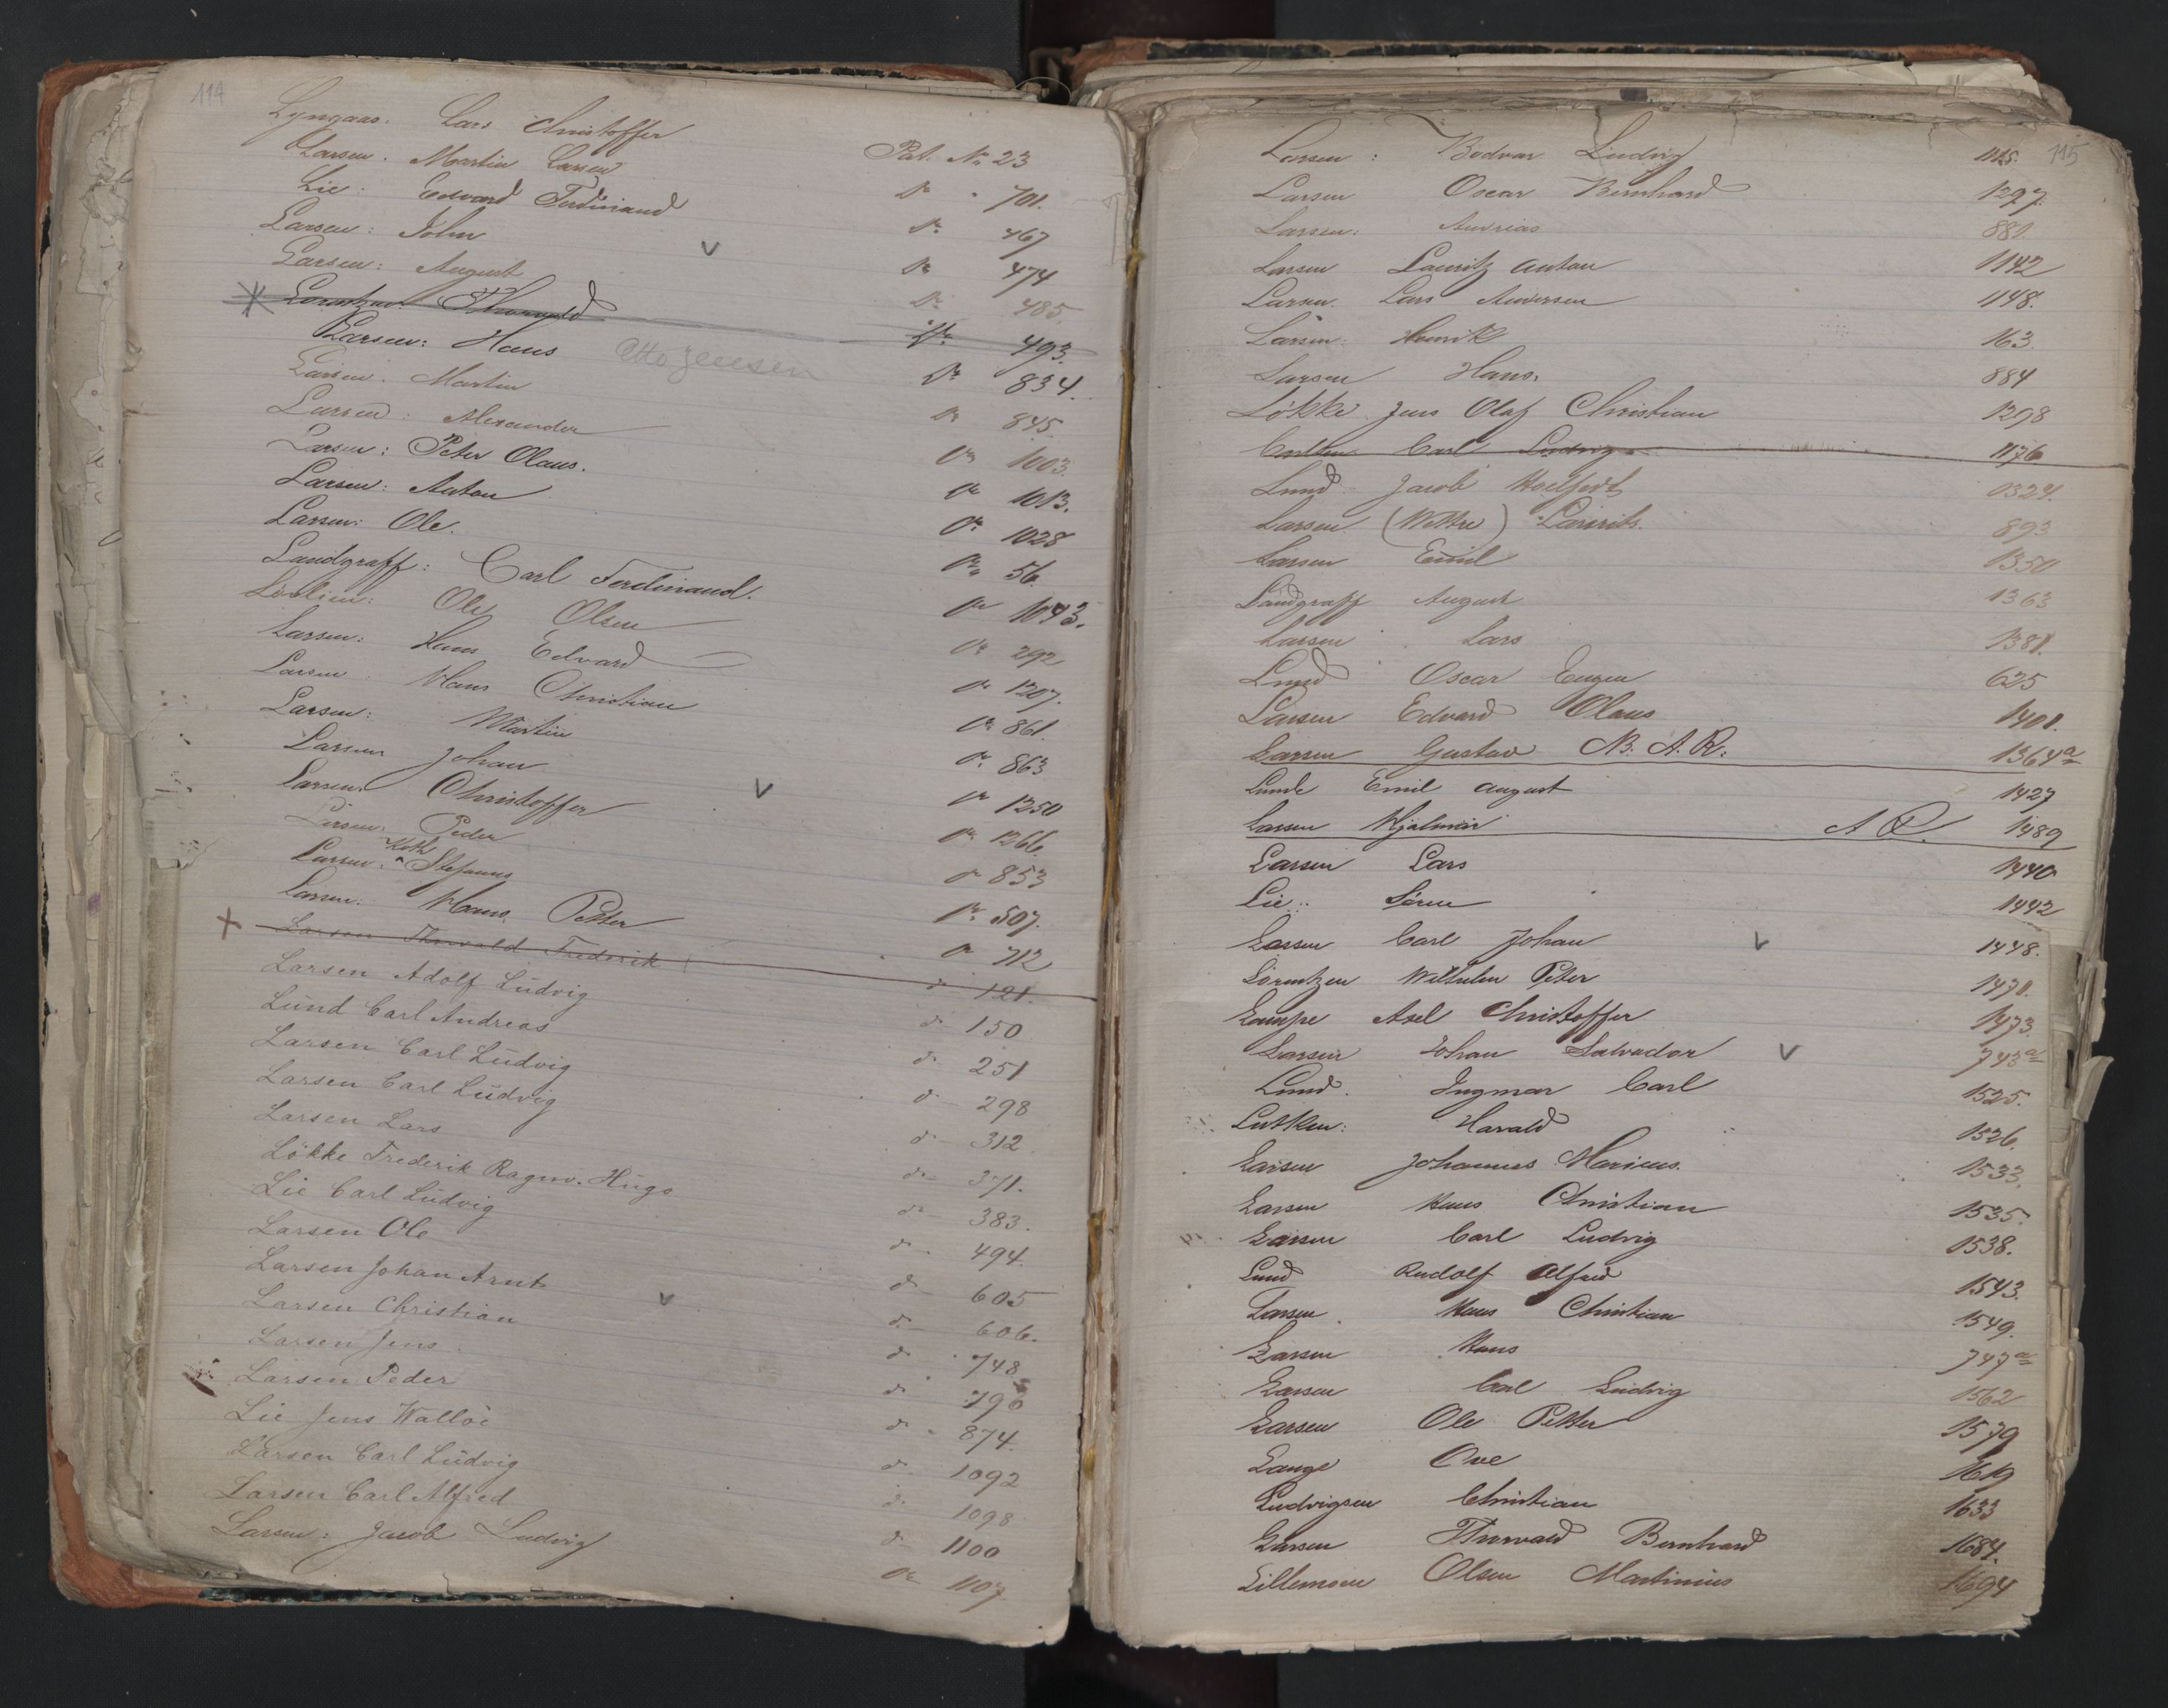 114
Lyngaas. Lars Christoffer Pat. No 23
Larsen. Martin Larsen Do " 701.
Lie: Edvard Ferdinand Do 467
Larsen: John Do 474
Larsen: August Do 485.
Lorentzen. Thorvald Do 493.
Larsen: Hans Otto Jensen Do 834.
Larsen. Martin Do 845
Larsen: Alexander Do 1003.
Larsen: Peter Olaus. Do 1013.
Larsen: Anton Do 1028
Larsen: Ole. Do 56.
Landgraff: Carl Ferdinand. Do 1043.
Ole Olsen Do 292
Larsen: Hans Edvard Do 1207.
Larsen Hans Christian Do 861.
Larsen: Martin Do 863
Larsen Johan Do 1250
Larsen: Christoffer Do 1266.
Larsen. Peder Do 853
Larsen: Stefanus Do 507.
Larsen: Hans Petter Do 712
Larsen Thorvald Frederik do 121.
Larsen Adolf Ludvig do 150
Lund Carl Andreas do 251
Larsen Carl Ludvig do 298
Larsen Carl Ludvig do 312
Larsen Lars do 371.
Løkke Frederik Ragnv. Hugo do 383.
Lie Carl Ludvig do 494.
Larsen Ole do 605
Larsen Johan Arnt do 606.
Larsen Christian do 748
Larsen Jens do
Larsen Peder do 874.
Lie Jens Walløe do 1092
Larsen Carl Ludvig do 1098
Larsen Carl Alfred do 1100
Larsen: Jacob Ludvig Do 1107
115
Larsen: Bodvar Ludvig 1125.
Larsen Oscar Bernhard 1297.
Larsen: Andreas 881
Larsen Lauritz Anton 1142
Larsen. Lars Andersen 1148.
Larsen: Henrik 163
Larsen Hans. 884
Løkke Jens Olaf Christian 1298
Carl Ludvig 1176
Lund Jacob 1324.
Larsen (Wettre) Laurits. 893
Larsen Emil 1350
Landgraff August 1363
Larsen Lars 1381.
Lund Oscar Eugen 625
Larsen Edvard Olaus 1401.
Larsen Gustav N: A. R: 1364a
Lunde Emil August 1427
Larsen Hjalmar A R. 1489
Larsen Lars 1440
Lie: Søren 1442
Larsen Carl Johan 1448.
Lorentzen Wilhelm Peter 1471.
Lampe Axel Christoffer 1473.
Larsen Johan Salvador 743a
Lund. Ingmar Carl 1525.
Lutken: Harald 1526.
Larsen Johannes Marius. 1533.
Larsen Hans Christian 1535.
Larsen Carl Ludvig 1538.
Lund Rudolf Alfred 1543.
Larsen. Hans Christian 1549.
Larsen Hans 747a
Larsen Carl Ludvig 1562
Larsen Ole Petter 1579
Lange Ove 1619
Ludvigsen Christian 1633
Larsen Thorvald Bernhard 1684.
Lillemoen Olsen Martinius 1694